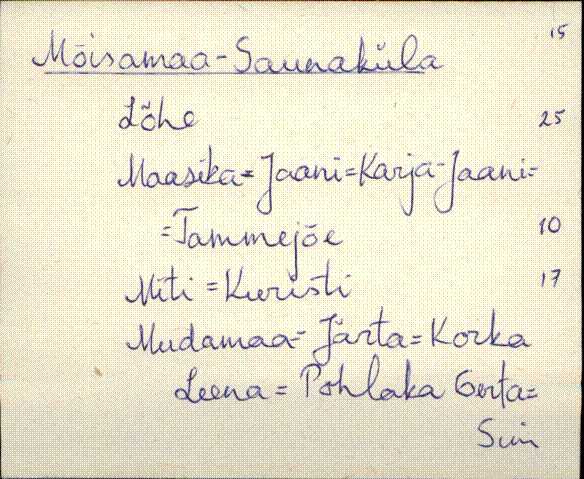 15
Mõisamaa-Saunaküla
Lõhe 25
Maasika=Jaani=Karja-Jaani=
=Tammejõe 10
Miti=Kuristi 17
Mudamaa=Järta=Korka
Leena=Pohlaka Gerta=
Siim